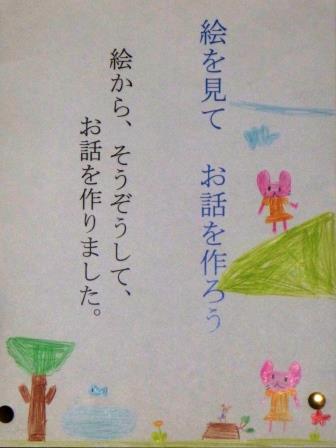 絵を見て　お話を作ろう
絵から、そうぞうして、
お話を作りました。